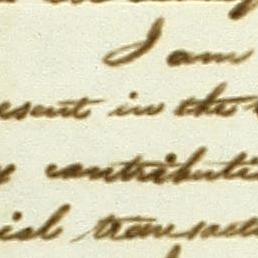 I am
esent in the
contributi
ial transact